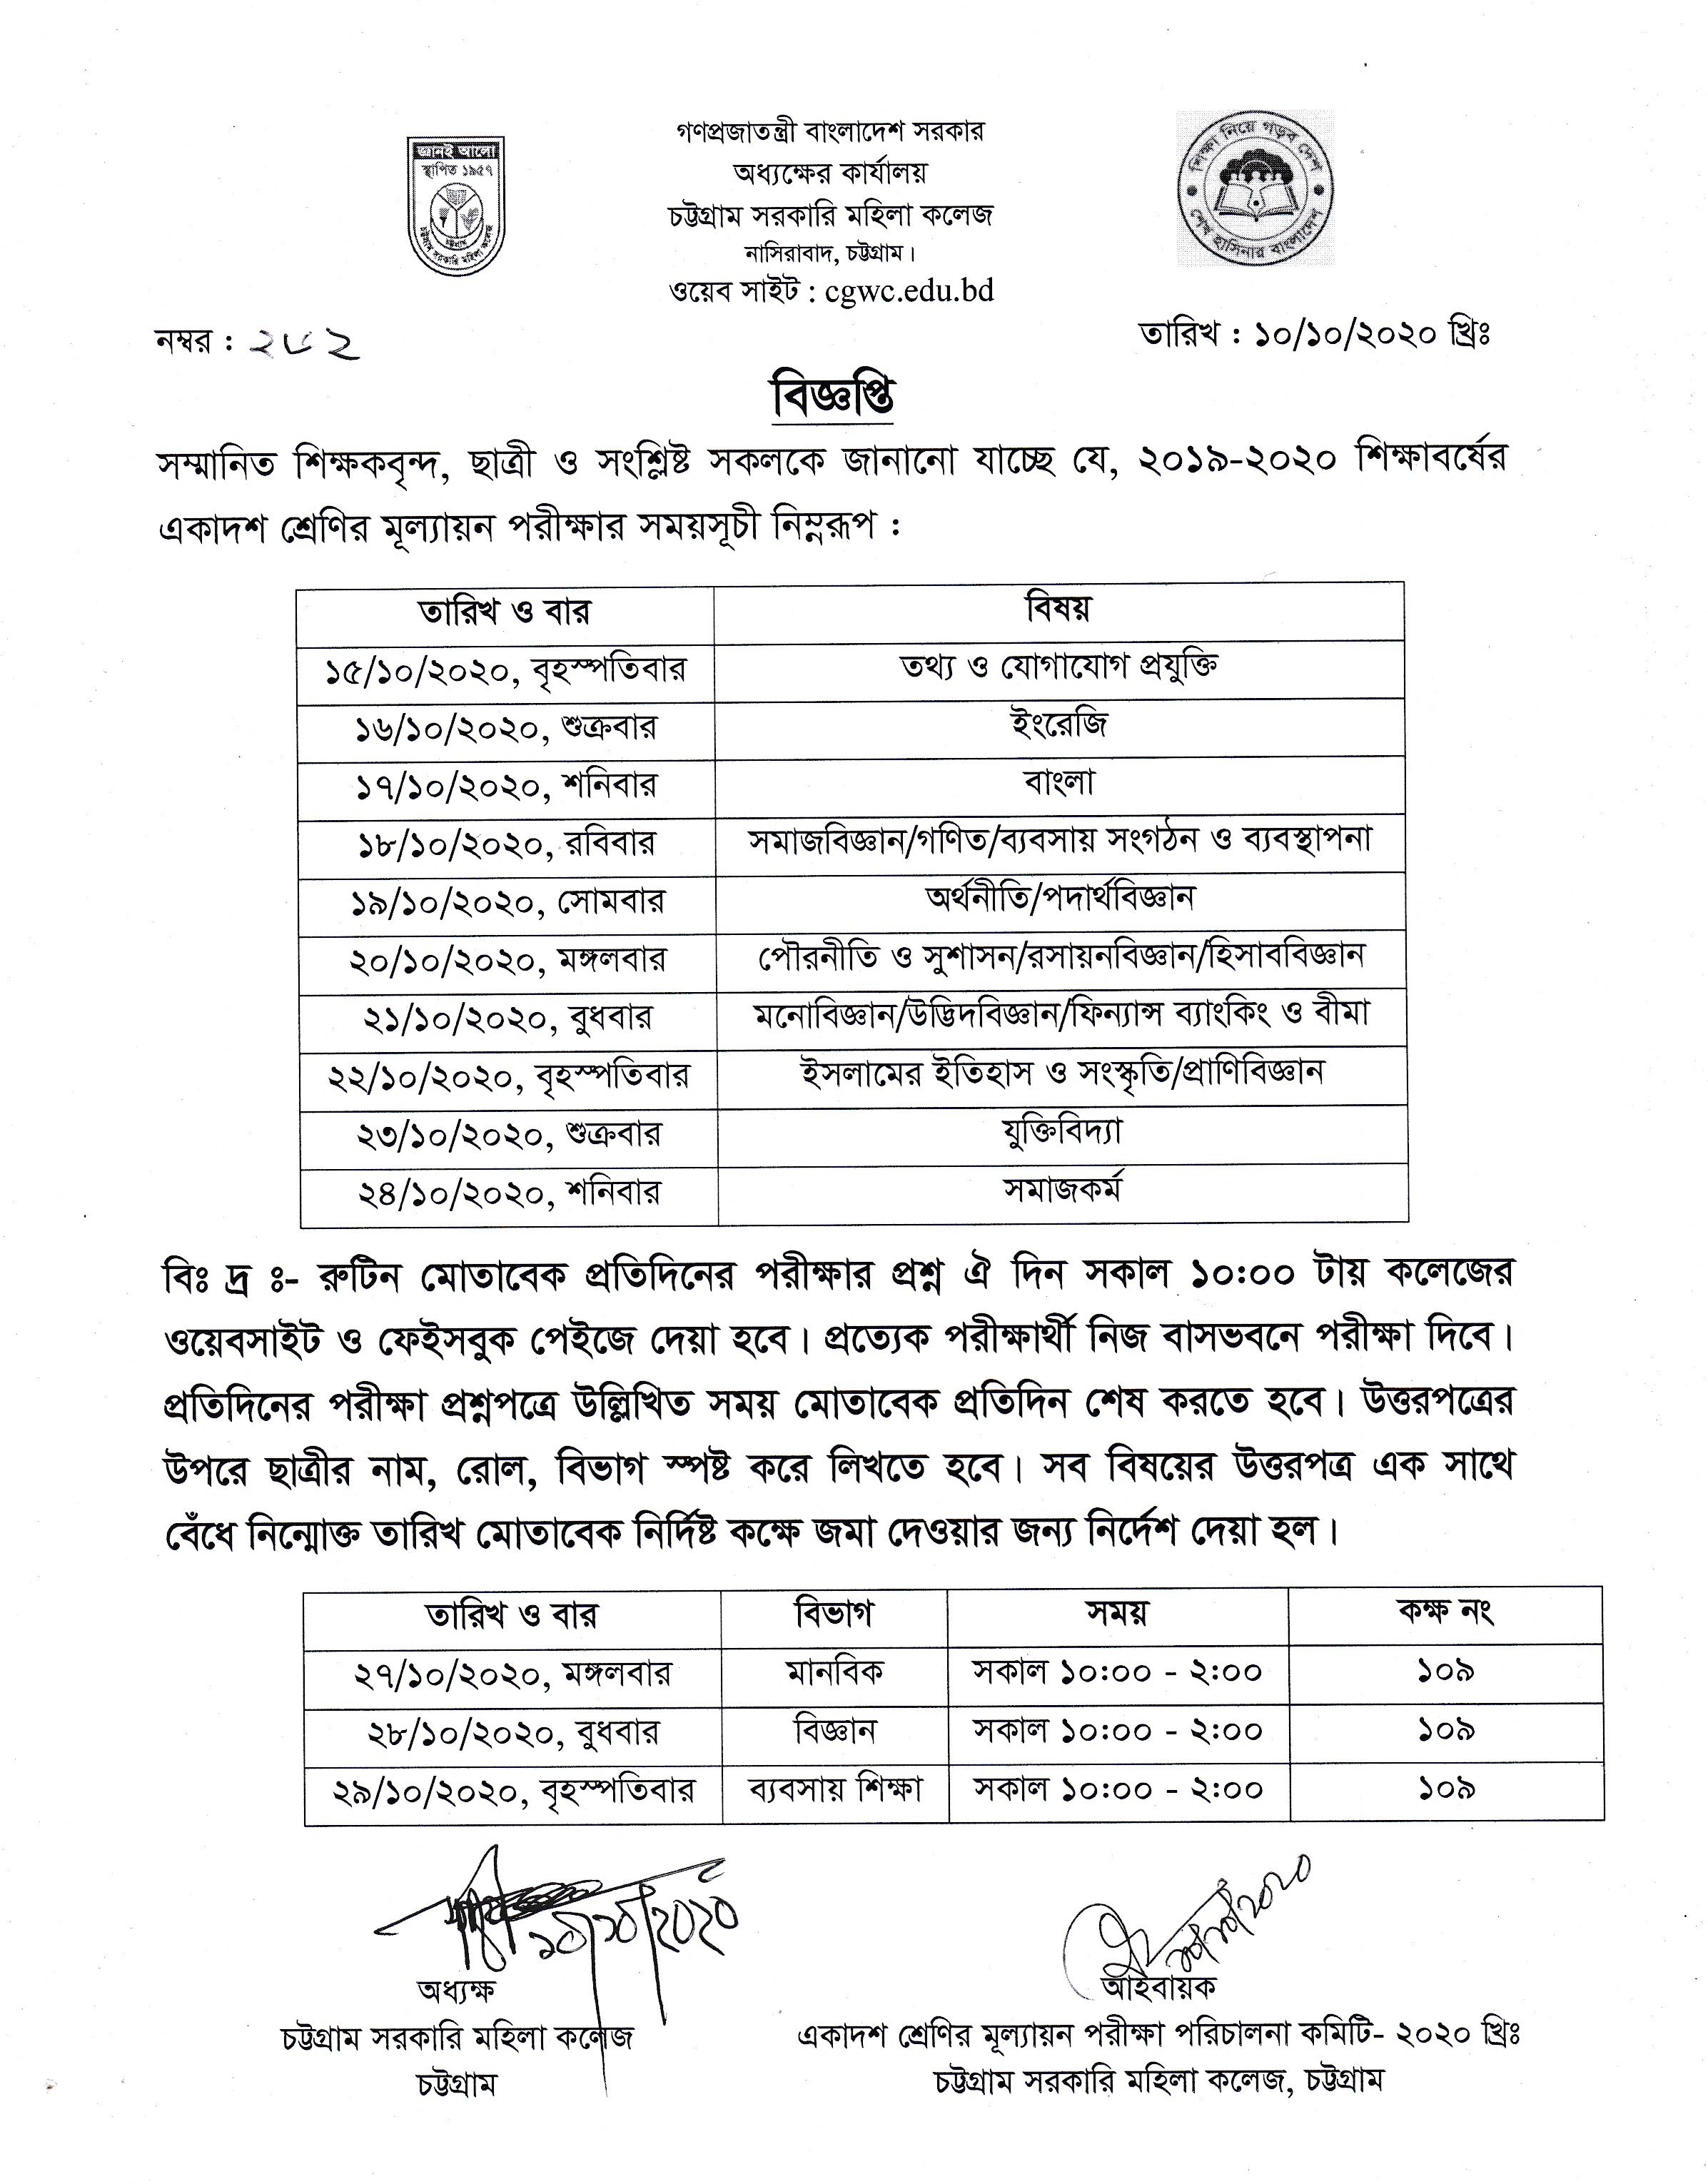 গণপ্রজাতন্ত্রী বাংলাদেশ সরকার
অধ্যক্ষের কার্যালয়
চট্টগ্রাম সরকারি মহিলা কলেজ
নাসিরাবাদ, চট্টগ্রাম।
ওয়েব সাইট : cgwc.edu.bd
জ্ঞানই আলো
স্থাপিত ১৯৫৭
চট্টগ্রাম সরকারি মহিলা কলেজ
শিক্ষা নিয়ে গড়ব দেশ
শেখ হাসিনার বাংলাদেশ
নম্বর : ২৮২
তারিখ : ১০/১০/২০২০ খ্রিঃ
বিজ্ঞপ্তি
সম্মানিত শিক্ষকবৃন্দ, ছাত্রী ও সংশ্লিষ্ট সকলকে জানানো যাচ্ছে যে, ২০১৯-২০২০ শিক্ষাবর্ষের
একাদশ শ্রেণির মূল্যায়ন পরীক্ষার সময়সূচী নিম্নরূপ :
তারিখ ও বার বিষয়
১৫/১০/২০২০, বৃহস্পতিবার তথ্য ও যোগাযোগ প্রযুক্তি
১৬/১০/২০২০, শুক্রবার ইংরেজি
১৭/১০/২০২০, শনিবার বাংলা
১৮/১০/২০২০, রবিবার সমাজবিজ্ঞান/গণিত/ব্যবসায় সংগঠন ও ব্যবস্থাপনা
১৯/১০/২০২০, সোমবার অর্থনীতি/পদার্থবিজ্ঞান
২০/১০/২০২০, মঙ্গলবার পৌরনীতি ও সুশাসন/রসায়নবিজ্ঞান/হিসাববিজ্ঞান
২১/১০/২০২০, বুধবার মনোবিজ্ঞান/উদ্ভিদবিজ্ঞান/ফিন্যান্স ব্যাংকিং ও বীমা
২২/১০/২০২০, বৃহস্পতিবার ইসলামের ইতিহাস ও সংস্কৃতি/প্রাণিবিজ্ঞান
২৩/১০/২০২০, শুক্রবার যুক্তিবিদ্যা
২৪/১০/২০২০, শনিবার সমাজকর্ম
বিঃ দ্র ঃ- রুটিন মোতাবেক প্রতিদিনের পরীক্ষার প্রশ্ন ঐ দিন সকাল ১০:০০ টায় কলেজের
ওয়েবসাইট ও ফেইসবুক পেইজে দেয়া হবে। প্রত্যেক পরীক্ষার্থী নিজ বাসভবনে পরীক্ষা দিবে।
প্রতিদিনের পরীক্ষা প্রশ্নপত্রে উল্লিখিত সময় মোতাবেক প্রতিদিন শেষ করতে হবে। উত্তরপত্রের
উপরে ছাত্রীর নাম, রোল, বিভাগ স্পষ্ট করে লিখতে হবে। সব বিষয়ের উত্তরপত্র এক সাথে
বেঁধে নিন্মোক্ত তারিখ মোতাবেক নির্দিষ্ট কক্ষে জমা দেওয়ার জন্য নির্দেশ দেয়া হল।
তারিখ ও বার বিভাগ সময় কক্ষ নং
২৭/১০/২০২০, মঙ্গলবার মানবিক সকাল ১০:০০ - ২:০০ ১০৯
২৮/১০/২০২০, বুধবার বিজ্ঞান সকাল ১০:০০ - ২:০০ ১০৯
২৯/১০/২০২০, বৃহস্পতিবার ব্যবসায় শিক্ষা সকাল ১০:০০ - ২:০০ ১০৯
১০/১০/২০২০
১০/১০/২০২০
অধ্যক্ষ
চট্টগ্রাম সরকারি মহিলা কলেজ
চট্টগ্রাম
আহবায়ক
একাদশ শ্রেণির মূল্যায়ন পরীক্ষা পরিচালনা কমিটি- ২০২০ খ্রিঃ
চট্টগ্রাম সরকারি মহিলা কলেজ, চট্টগ্রাম